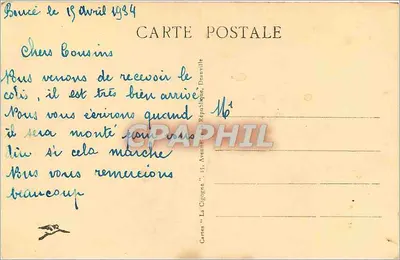 Boucé le 15 Avril 1934
CARTE POSTALE
Chers Cousins
Nous venons de recevoir le
colis, il est très bien arrivé
Nous vous écrirons quand
il sera monté pour vous
dire si cela marche
Nous vous remercions
beaucoup
Mr
CPAPHIL
Cartes "La Cigogne", 21, Avenue République, Deauville